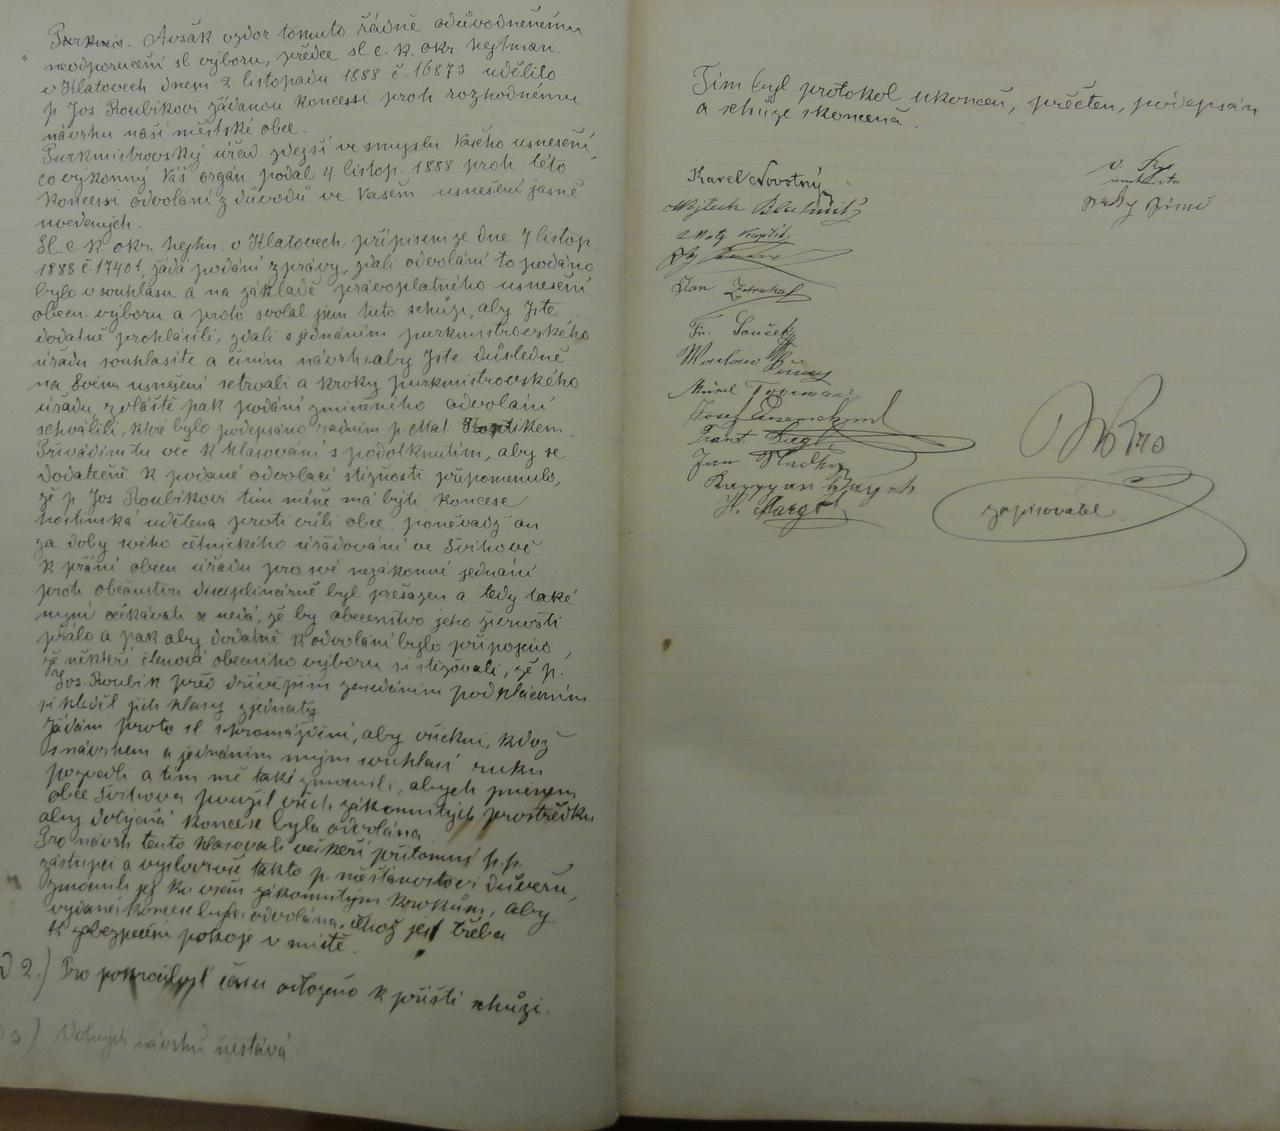 Purkmis. Avšak vzdor tomuto řádně odůvodněnému
neodporučení sl výboru, přece sl. c. k. okr hejtman.
v Klatovech dnem 2. listopadu 1888 č. 16873 udělilo
p. Jos. Roubíkovi žádanou koncessi proti rozhodnému
návrhu naší městské obce.
Purkmistrovský úřad zdejší ve smyslu Vašeho usnesení,
co výkonný Váš orgán podal 4 listop. 1888 proti této
koncessi odvolání z důvodů ve Vašem usnešení jasně
uvedených.
Sl. c. k okr. hejtm. v Klatovech, přípisem ze dne 7 listop.
1888 č. 17401, žádá podání zprávy, zdali odvolání to podáno
bylo v souhlasu a na základě právoplatného usnešení
obecn. výboru a proto svolal jsem tuto schůzi, aby Jste
dodatně prohlásili, zdali s jednáním purkmistrovského
úřadu souhlasíte a činím návrh aby Jste důsledně
na Svém usnešení setrvali a kroky purkmistrovského
úřadu, zvláště pak podání zmíněného odvolání
schválili, které bylo podepsáno radním p. Mat. Koptikem.
Přivádím tu věc k hlasování s podotknutím, aby se
dodatečně k podané odvolací stížnosti připomenulo,
že p. Jos Roubíkovi tím méně má býti koncese
hostinská udělena proti vůli obce, poněvadž on
za doby svého četnického úřadování ve Švihově
k přání obecn úřadu pro své nezákonní jednání
proti občanstvu disciplinárně byl přesazen a tedy také
nyní očekávati se nedá, že by obecenstvo jeho živnosti
přálo a pak aby dodatně k odvolání bylo připojeno,
že někteří členové obecního výboru si stěžovali, že p.
Jos. Roubík před dřívějším zasedáním podplácením
si chtěl jich hlasy zjednati
Žádám proto sl. shromáždění, aby všickni, kdož
s návrhem a jednáním mým souhlasí ruku
pozvedli a tím mě také zmocnili, abych jménem
obce Švihova použil všech zákonnitých prostředků
aby dotyčná koncese byla odvolána
Pro návrh tento hlasovali veškeří přítomní p. p.
zástupci a vyslovivše takto p. městanostovi důvěru,
zmocnili jej ku všem zákonnitým krokům, aby
vydaná koncese byla odvolána, čehož jest třeba
k zabezpečení pokoje v místě.
D 2.) Pro pokročilost času odloženo k příští schůzi.
D 3.) Volných návrhů nestává
Tím byl protokol ukončen, přečten, podepsán
a schůze skončena.
Karel Novotný
Vojtech
Jan
Fr. Souček
Josef
Frant. Siegl
Jan Hladký
H. Margl
zapisovatel.